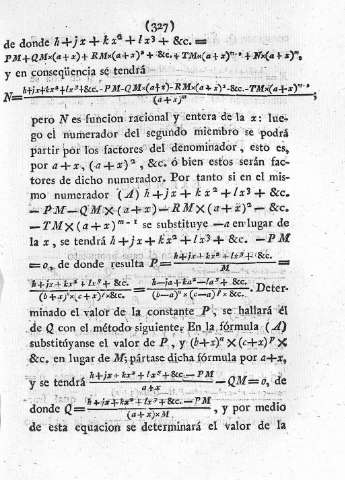 (327)
de donde h+jx+kx²+lx³+&c.=
PM+QM×(a+x)+RM×(a+x)²+&c.+TM×(a+x)ⁿ⁻¹+N×(a+x)ⁿ,
y en conseqüencia se tendrá
N=h+jx+kx²+lx³+&c.-PM-QM×(a+x)-RM×(a+x)²-&c.-TM×(a+x)ⁿ⁻¹
(a+x)ⁿ ;
pero N es funcion racional y entera de la x: lue-
go el numerador del segundo miembro se podrá
partir por los factores del denominador, esto es,
por a+x, (a+x)², &c. ó bien estos serán fac-
tores de dicho numerador. Por tanto si en el mis-
mo numerador (A) h+jx+kx²+lx³+&c.
—PM—QM×(a+x)—RM×(a+x)²—&c.
—TM×(a+x)ⁿ⁻¹ se substituye —a en lugar de
la x, se tendrá h+jx+kx²+lx³+&c. —PM
=0, de donde resulta P= h+jx+kx²+lx³+&c. =
M
h+jx+kx²+lx³+&c. = h—ja+ka²—la³+&c. . Deter-
(b+x)ᵞ×(c+x)ᵖ×&c. (b—a)ᵞ×(c—a)ᵖ×&c.
minado el valor de la constante P, se hallará el
de Q con el método siguiente. En la fórmula (A)
substitúyanse el valor de P, y (b+x)ⁿ×(c+x)ᵖ×
&c. en lugar de M; pártase dicha fórmula por a+x,
y se tendrá h+jx+kx²+lx³+&c.—PM —QM=0, de
a+x
donde Q= h+jx+kx²+lx³+&c.—PM , y por medio
(a+x)×M
de esta equacion se determinará el valor de la